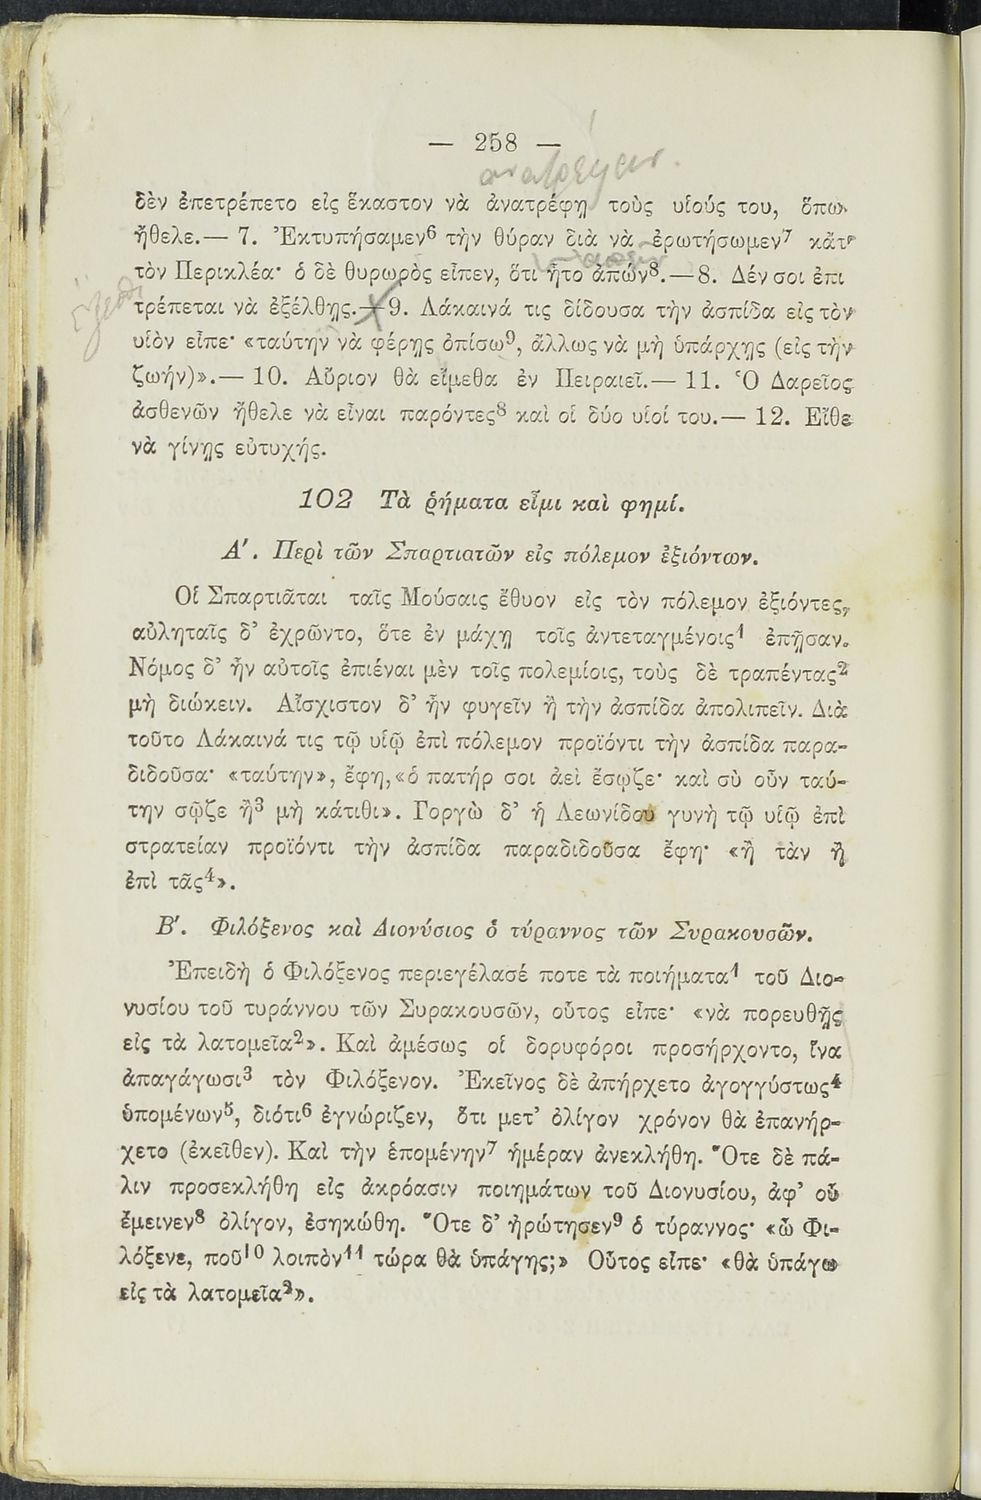 — 258 —
δὲν ἐπετρέπετο εἰς ἕκαστον νὰ ἀνατρέφῃ τοὺς υἱούς του, ὅπως
ἤθελε.— 7. Ἐκτυπήσαμεν⁶ τὴν θύραν διὰ νὰ ἐρωτήσωμεν⁷ κἄτι
τὸν Περικλέα· ὁ δὲ θυρωρὸς εἶπεν, ὅτι ἦτο ἀπών⁸.—8. Δέν σοι ἐπι
τρέπεται νὰ ἐξέλθῃς.—9. Λάκαινά τις δίδουσα τὴν ἀσπίδα εἰς τὸν
υἱὸν εἶπε· «ταύτην νὰ φέρῃς ὀπίσω⁹, ἄλλως νὰ μὴ ὑπάρχῃς (εἰς τὴν
ζωήν)».— 10. Αὔριον θὰ εἴμεθα ἐν Πειραιεῖ.— 11. Ὁ Δαρεῖος
ἀσθενῶν ἤθελε νὰ εἶναι παρόντες⁸ καὶ οἱ δύο υἱοί του.— 12. Εἴθε
νὰ γίνῃς εὐτυχής.
102 Τὰ ῥήματα εἶμι καὶ φημί.
Α΄. Περὶ τῶν Σπαρτιατῶν εἰς πόλεμον ἐξιόντων.
Οἱ Σπαρτιᾶται ταῖς Μούσαις ἔθυον εἰς τὸν πόλεμον ἐξιόντες,
αὐληταῖς δ' ἐχρῶντο, ὅτε ἐν μάχῃ τοῖς ἀντεταγμένοις¹ ἐπῇσαν.
Νόμος δ' ἦν αὐτοῖς ἐπιέναι μὲν τοῖς πολεμίοις, τοὺς δὲ τραπέντας²
μὴ διώκειν. Αἴσχιστον δ' ἦν φυγεῖν ἢ τὴν ἀσπίδα ἀπολιπεῖν. Διὰ
τοῦτο Λάκαινά τις τῷ υἱῷ ἐπὶ πόλεμον προϊόντι τὴν ἀσπίδα παρα-
διδοῦσα· «ταύτην», ἔφη, «ὁ πατήρ σοι ἀεὶ ἔσῳζε· καὶ σὺ οὖν ταύ-
την σῷζε ἢ³ μὴ κάτιθι». Γοργὼ δ' ἡ Λεωνίδου γυνὴ τῷ υἱῷ ἐπὶ
στρατείαν προϊόντι τὴν ἀσπίδα παραδιδοῦσα ἔφη· «ἢ τὰν ἢ
ἐπὶ τᾶς⁴».
Β΄. Φιλόξενος καὶ Διονύσιος ὁ τύραννος τῶν Συρακουσῶν.
Ἐπειδὴ ὁ Φιλόξενος περιεγέλασέ ποτε τὰ ποιήματα¹ τοῦ Διο-
νυσίου τοῦ τυράννου τῶν Συρακουσῶν, οὗτος εἶπε· «νὰ πορευθῇς
εἰς τὰ λατομεῖα²». Καὶ ἀμέσως οἱ δορυφόροι προσήρχοντο, ἵνα
ἀπαγάγωσι³ τὸν Φιλόξενον. Ἐκεῖνος δὲ ἀπήρχετο ἀγογγύστως⁴
ὑπομένων⁵, διότι⁶ ἐγνώριζεν, ὅτι μετ' ὀλίγον χρόνον θὰ ἐπανήρ-
χετο (ἐκεῖθεν). Καὶ τὴν ἑπομένην⁷ ἡμέραν ἀνεκλήθη. Ὅτε δὲ πά-
λιν προσεκλήθη εἰς ἀκρόασιν ποιημάτων τοῦ Διονυσίου, ἀφ' οὗ
ἔμεινεν⁸ ὀλίγον, ἐσηκώθη. Ὅτε δ' ἠρώτησεν⁹ ὁ τύραννος· «ὦ Φι-
λόξενε, ποῦ¹⁰ λοιπὸν¹¹ τώρα θὰ ὑπάγης;» Οὗτος εἶπε· «θὰ ὑπάγω
εἰς τὰ λατομεῖα²».